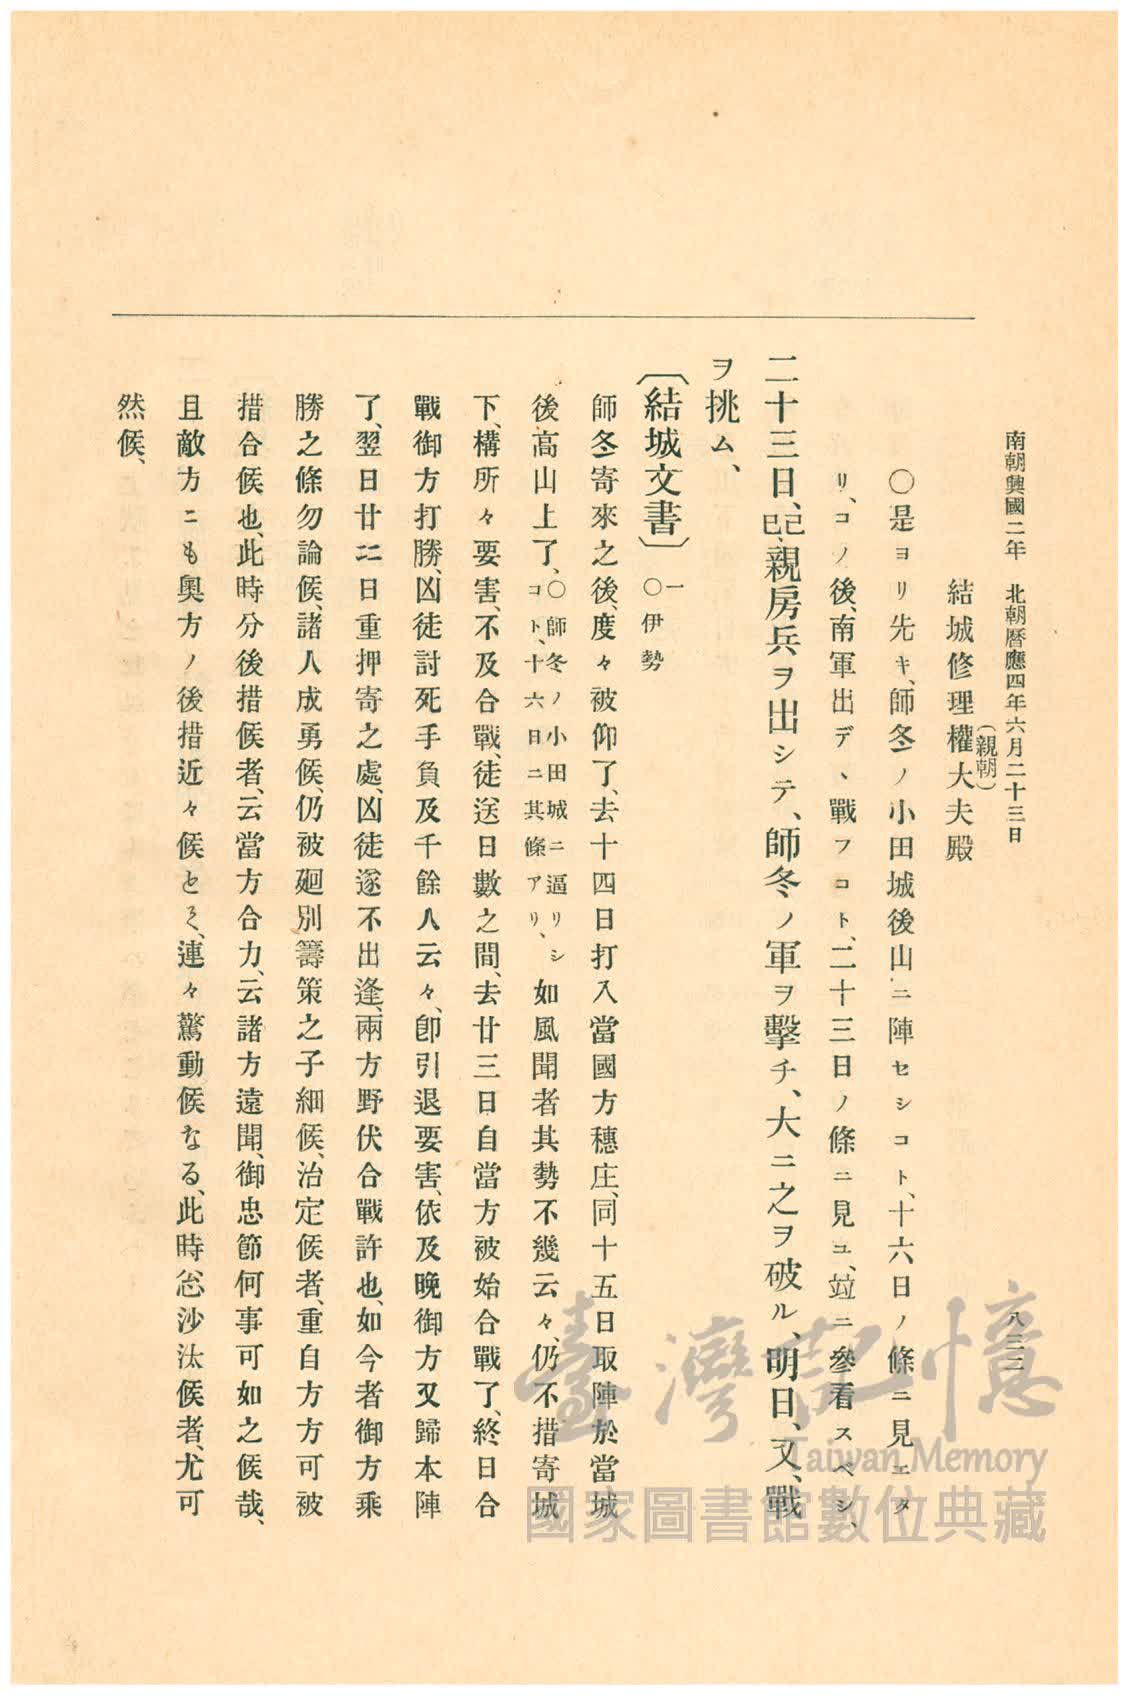 南朝興國二年　北朝曆應四年六月二十三日　八三二
結城修理權大夫殿
（親朝）
○是ヨリ先キ、師冬ノ小田城後山ニ陣セシコト、十六日ノ條ニ見エタ
リ、コノ後、南軍出デ、戰フコト、二十三日ノ條ニ見ユ、竝ニ參看スベシ、
二十三日、己巳、親房兵ヲ出シテ、師冬ノ軍ヲ擊チ、大ニ之ヲ破ル、明日、又、戰
ヲ挑ム、
〔結城文書〕一○伊勢
師冬寄來之後、度々被仰了、去十四日打入當國方穗庄、同十五日取陣於當城
後高山上了、○師冬ノ小田城ニ逼リシコト、十六日ニ其條アリ、如風聞者其勢不幾云々、仍不措寄城
下、構所々要害、不及合戰、徒送日數之間、去廿三日自當方被始合戰了、終日合
戰御方打勝、凶徒討死手負及千餘人云々、卽引退要害、依及晩御方又歸本陣
了、翌日廿二日重押寄之處、凶徒遂不出逢、兩方野伏合戰許也、如今者御方乘
勝之條勿論候、諸人成勇候、仍被廻別籌策之子細候、治定候者、重自方方可被
措合候也、此時分後措候者、云當方合力、云諸方遠聞、御忠節何事可如之候哉、
且敵方ニも奧方ノ後措近々候とそ、連々驚動候なる、此時、忩沙汰候者、尤可
然候、
臺灣記憶
Taiwan Memory
國家圖書館數位典藏